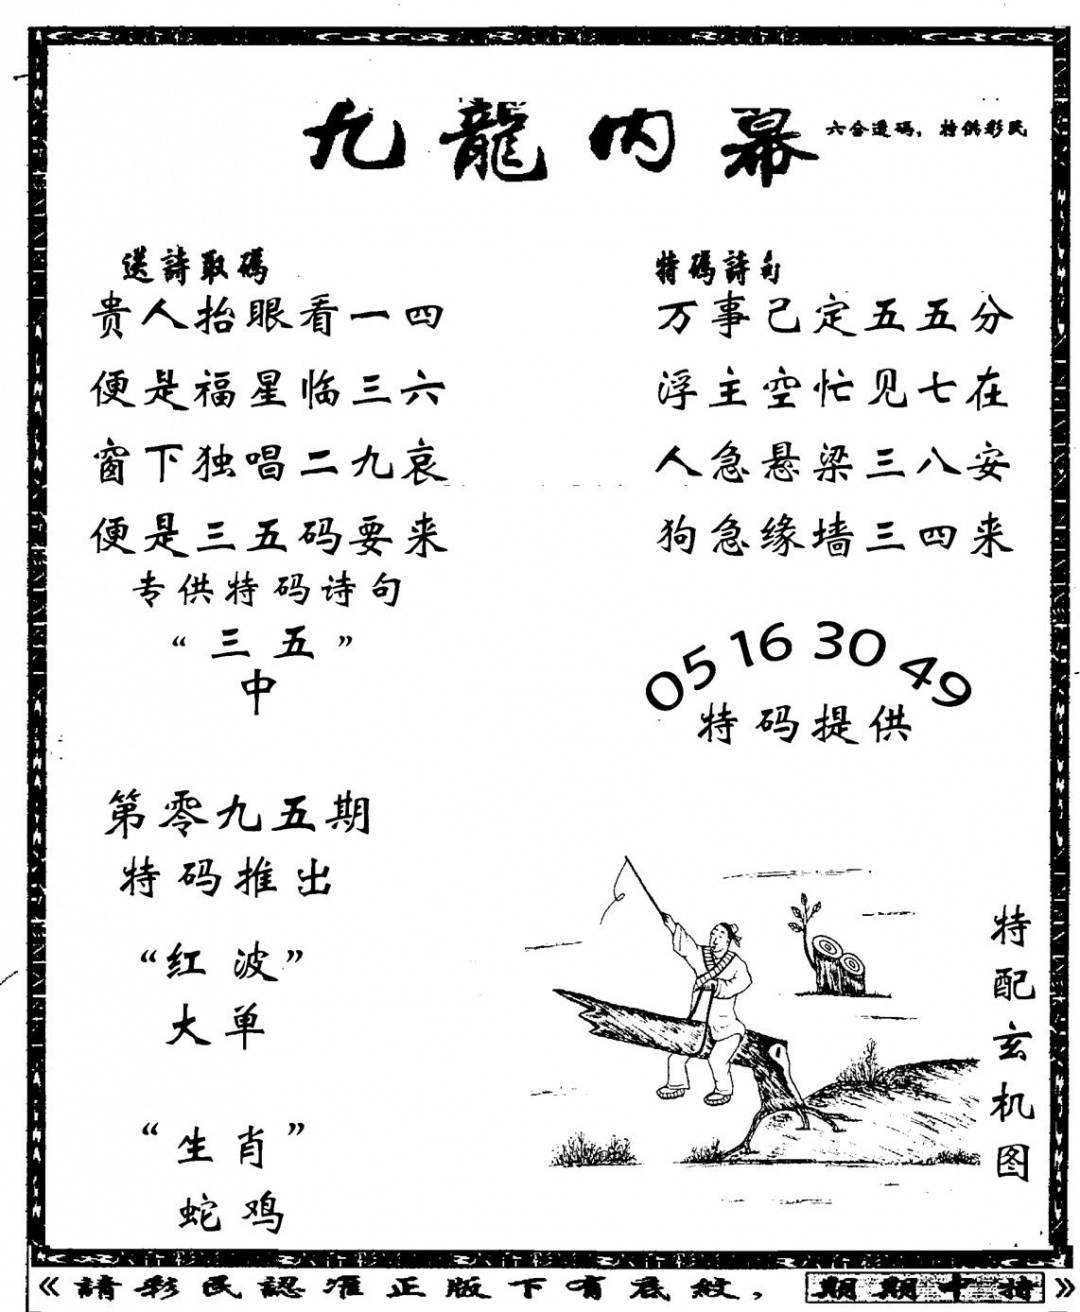 九龍内幕
六合透碼，特供彩民
送詩取碼
贵人抬眼看一四
便是福星临三六
窗下独唱二九哀
便是三五码要来
专供特码诗句
“三五”
中
第零九五期
特码推出
“红波”
大单
“生肖”
蛇鸡
特碼詩句
万事己定五五分
浮主空忙见七在
人急悬梁三八安
狗急缘墙三四来
05 16 30 49
特码提供
特配玄机图
《請彩民認准正版下有底紋，期期中特》